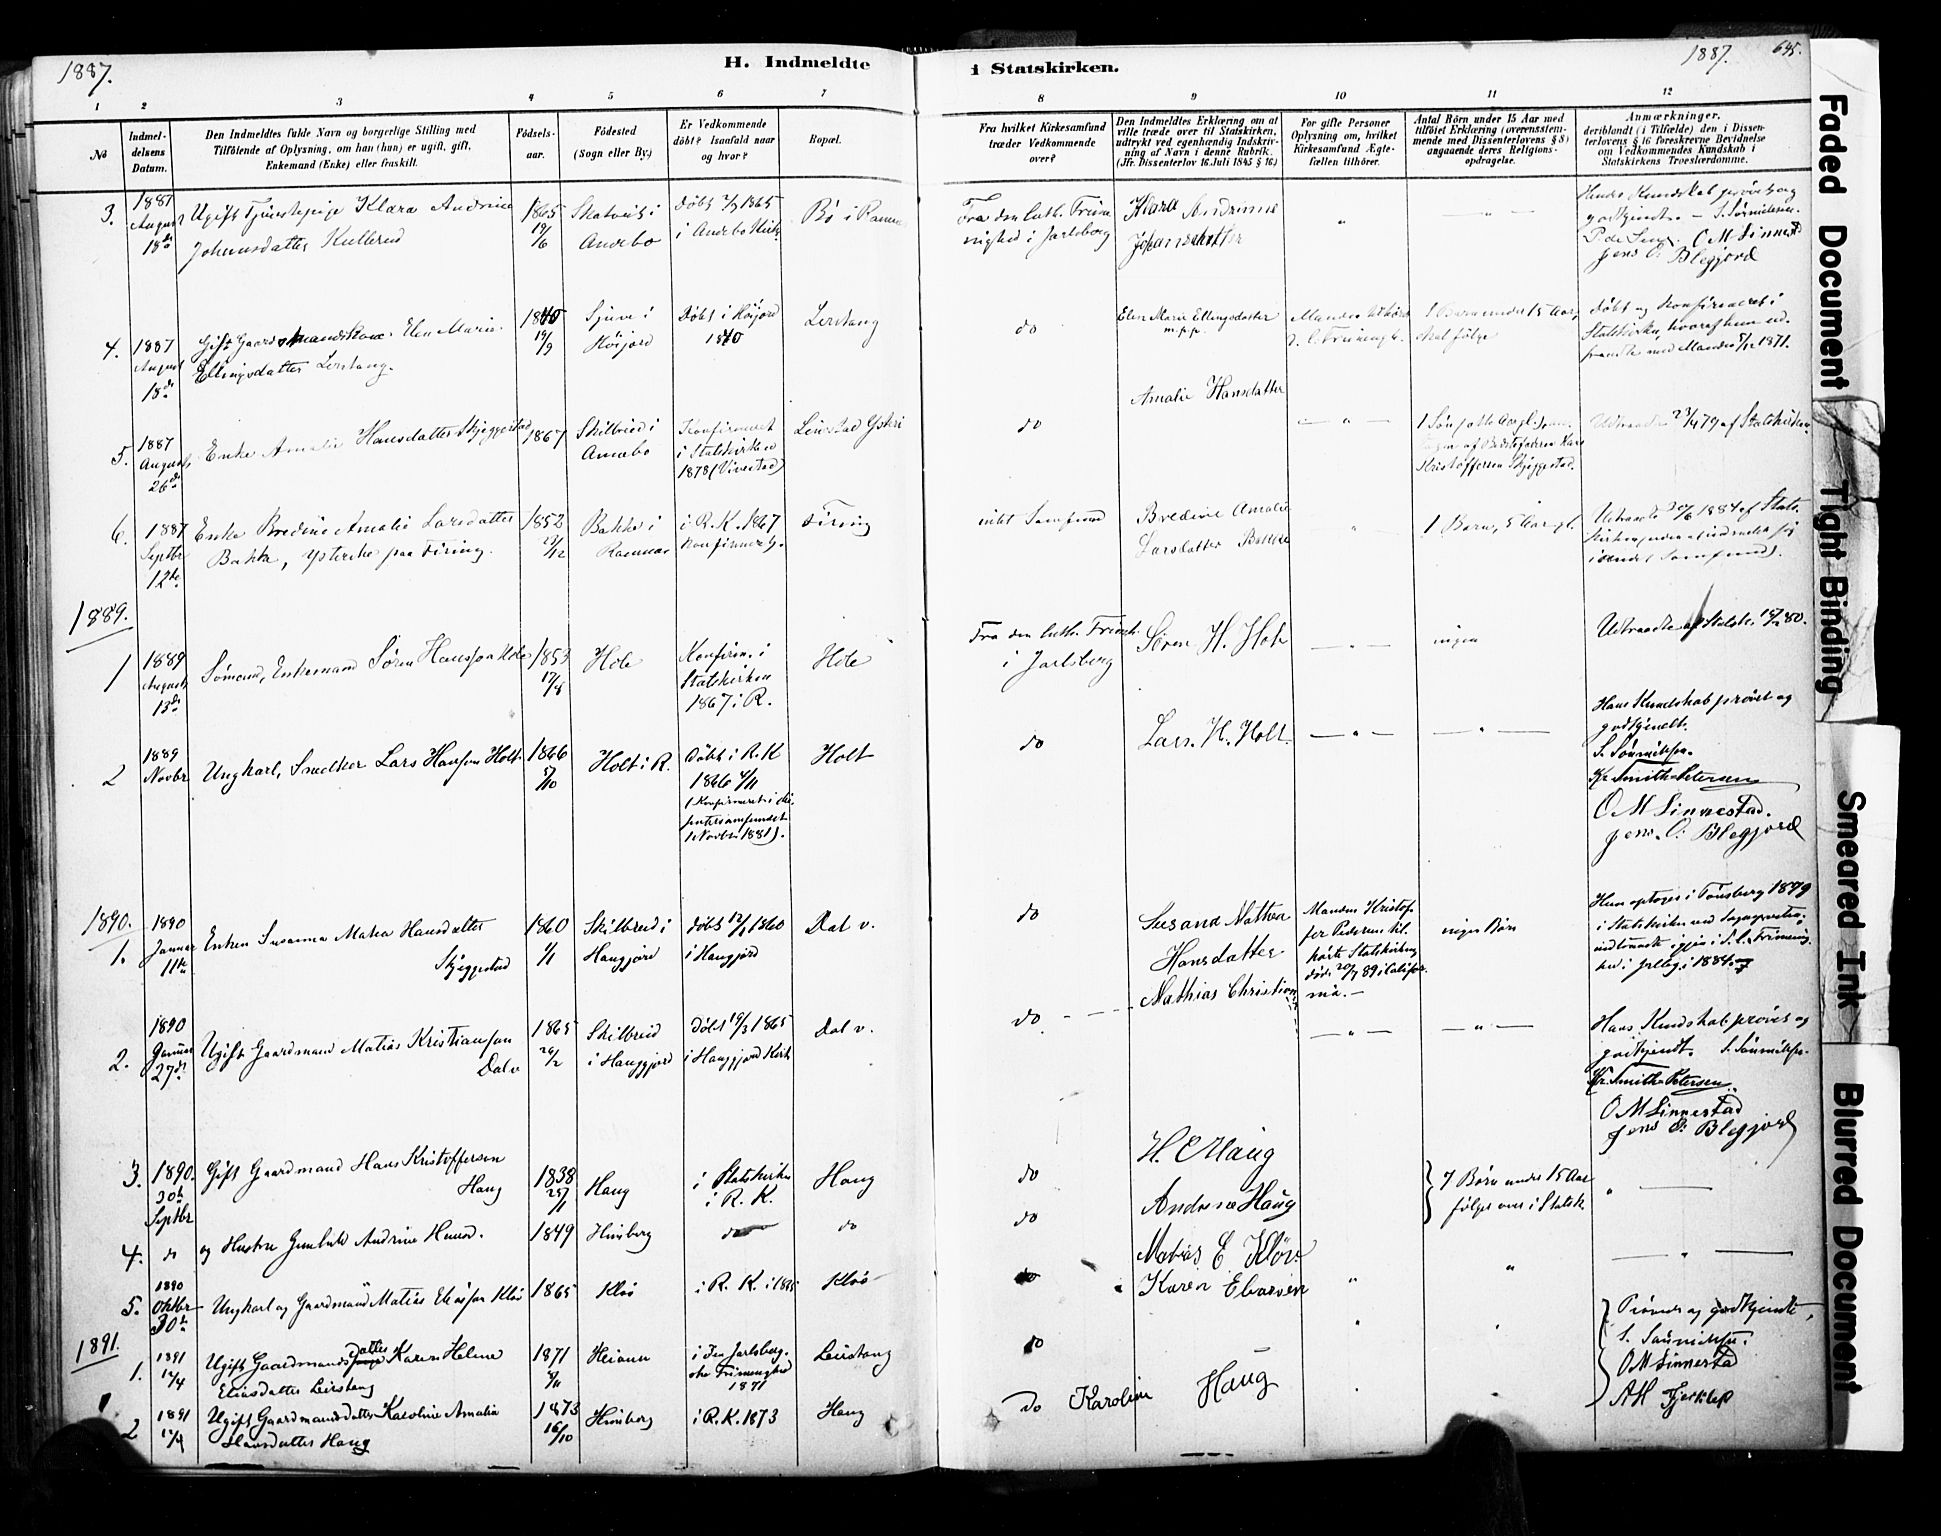 1887.
H. Indmeldte
i Statskirken.
1887.
645.
1 2 3 4 5 6 7
8 9 10 11 12
No
Indmel-
delsens
Datum.
Den Indmeldtes fulde Navn og borgerlige Stilling med
Tilföiende af Oplysning, om han (hun) er ugift, gift,
Enkemand (Enke) eller fraskilt.
Födsels-
aar.
Födested
(Sogn eller By.)
Er Vedkommende
döbt? Isaafald naar
og hvor?
Bopæl.
Fra hvilket Kirkesamfund
træder Vedkommende
over?
Den Indmeldtes Erklæring om at
ville træde over til Statskirken,
udtrykt ved egenhændig Indskriv-
ning af Navn i denne Rubrik.
(Jfr. Dissenterlov 16 Juli 1845 § 16.)
For gifte Personer
Oplysning om, hvilket
Kirkesamfund Ægte-
fællen tilhörer.
Antal Börn under 15 Aar med
tilföiet Erklæring (overensstem-
mende med Dissenterlovens § 8)
angaaende deres Religions-
opdragelse.
Anmærkninger,
deriblandt (i Tilfælde) den i Dissen-
terlovens § 16 foreskrevne Bevidnelse
om Vedkommendes Kundskab i
Statskirkens Troeslærdomme.
3.
1887
August
18de
Ugift Tjenestepige Klara Andrine
Johannsdatter Kullerud
1865
19/6
Skatveit i
Andebo
Døbt 2/7 1865
i Andebo Kirke
Bø i Ramnes
Fra den luth. Frime
nighed i Jarlsberg
Klara Andrinne
Johansdatter
Hendes Kundskab prøvet og
godkjendt. — S. Sørmiksen.
O M Linnestad
Jens O. Blegjord
4.
1887
August
18de
Gift Gaardmandskone Elen Marie
Ellingsdatter Lerstang.
1840
19/9
Sjuve i
Høijord
Døbt i Høijord
1840
Lerstang
do
Elen Marie Ellingsdatter
m.p.p.
1 Barn under 15 Aar,
skal følge
Døbt og Konfirmeret i
Statskirken, hvoraf hun ud-
traadte med Manden 5/12 1871.
5.
1887
August
26de
Enke Amalie Hansdatter Skjeggestad
1867
Skilbreid i
Andebo
Konfirmeret
i Statskirken
1878 (Vivestad)
Leirstad Ysteri
do
Amalie Hansdatter
Kristoffersen Skjeggestad.
Udtraadte 23/4 79 af Statskirken
6.
1887
Septbr
12te
Enke Bredine Amalie Larsdatter
Bakke, Ysterske paa Firing.
1852
22/12
Bakke i
Ramnes
i R. K. 1867
Konfirmert.
Firing
intet Samfund
Bredine Amalie
Larsdatter Bakke
1 Barn, 5 Aar gl.
Udtraadte 20/6 1884 af Stats-
kirken uden at indmelde sig
i andet Samfund.
1889.
1
1889
August
13de
Sømand, Enkemand Søren Hanssen Hole
1853
17/8
Hole
Konfirm. i
Statskirken
1867 i R.
Hole
Fra den luth. Frimh.
i Jarlsberg
Søren H. Hole
ingen
Udtraadte af Statsk. 18/2 80.
2
1889
Novbr
Ungkarl, Snedker Lars Hansen Holt
1866
5/10
Holt i R.
Døbt i R. K
1866 4/11
(Konfirmeret i dis-
sentersamfundet
Novbr 1881).
Holt
do
Lars. H. Holt.
Hans Kundskab prøvet og
godkjendt.
S. Sørmiksen.
Kr. Smith-Petersen
O M Linnestad.
Jens. O. Blegjord
1890.
1.
1890
Januar
11te
Enken Susanna Matea Hansdatter
Skjeggestad
1860
1/1
Skilbreid i
Haugjord
Døbt 12/1 1860
i Haugjord
Dal v.
do
Susana Mathea
Hansdatter
Manden Kristof
fer Pedersen til-
hørte Statskirken
døde 20/7 89 i Califor-
nia.—
ingen Børn
Hun optoges i Tønsberg 1879
i Statskirken ved Sogneprest
udtraadte igjen i d. l. Frimenig-
hed i Jrlbg i 1884.
2.
1890
Januar
27de
Ugift Gaardmand Matias Kristiansen
Dal v
1865
26/2
Skilbreid
i Haugjord
Døbt 19/3 1865
i Haugjord Kirke
Dal v.
do
Mathias Christian
Hans Kundskab prøvet og
godkjendt. S. Sørmiksen.
Kr. Smith-Petersen.
O M Linnestad
Jens O. Blegjord
3.
1890.
30te
Septbr
Gift Gaardmand Hans Kristoffersen
Haug
1838
25/1
Haug
i Statskirken
i R. K.
Haug
do
H. C Haug
7 Børn under 15 Aar
følger over i Statsk.
4. do og Hustru Gunhild Andrine Hansd. 1849 Himberg do do
do
Andrine Haug
5.
1890
Oktbr
30te
Ungkarl og Gaardmand Matias Eliassen Kløv
1865
Kløv
i R. K. i 1865
Kløv
do
Matias E Kløv
1891.
1.
1891
12/4
Ugift Gaardmandsdatter Karen Helene
Eliasdatter Leirstang
1871
8/11
Heian
i den Jarlsberg-
ske Frimenighed
1871
Leirstang
do
Karen Eliasen
Prøvede og godkjendte,
S. Sørmiksen.
O M Linnestad
2
1891
12/4
Ugift Gaardmandsdatter Karoline Amalia
Hansdatter Haug
1873
16/10
Himberg
i R. K. 1873
Haug
do
Karoline Haug
Faded Document
Tight Binding
Smeared Ink
Blurred Document